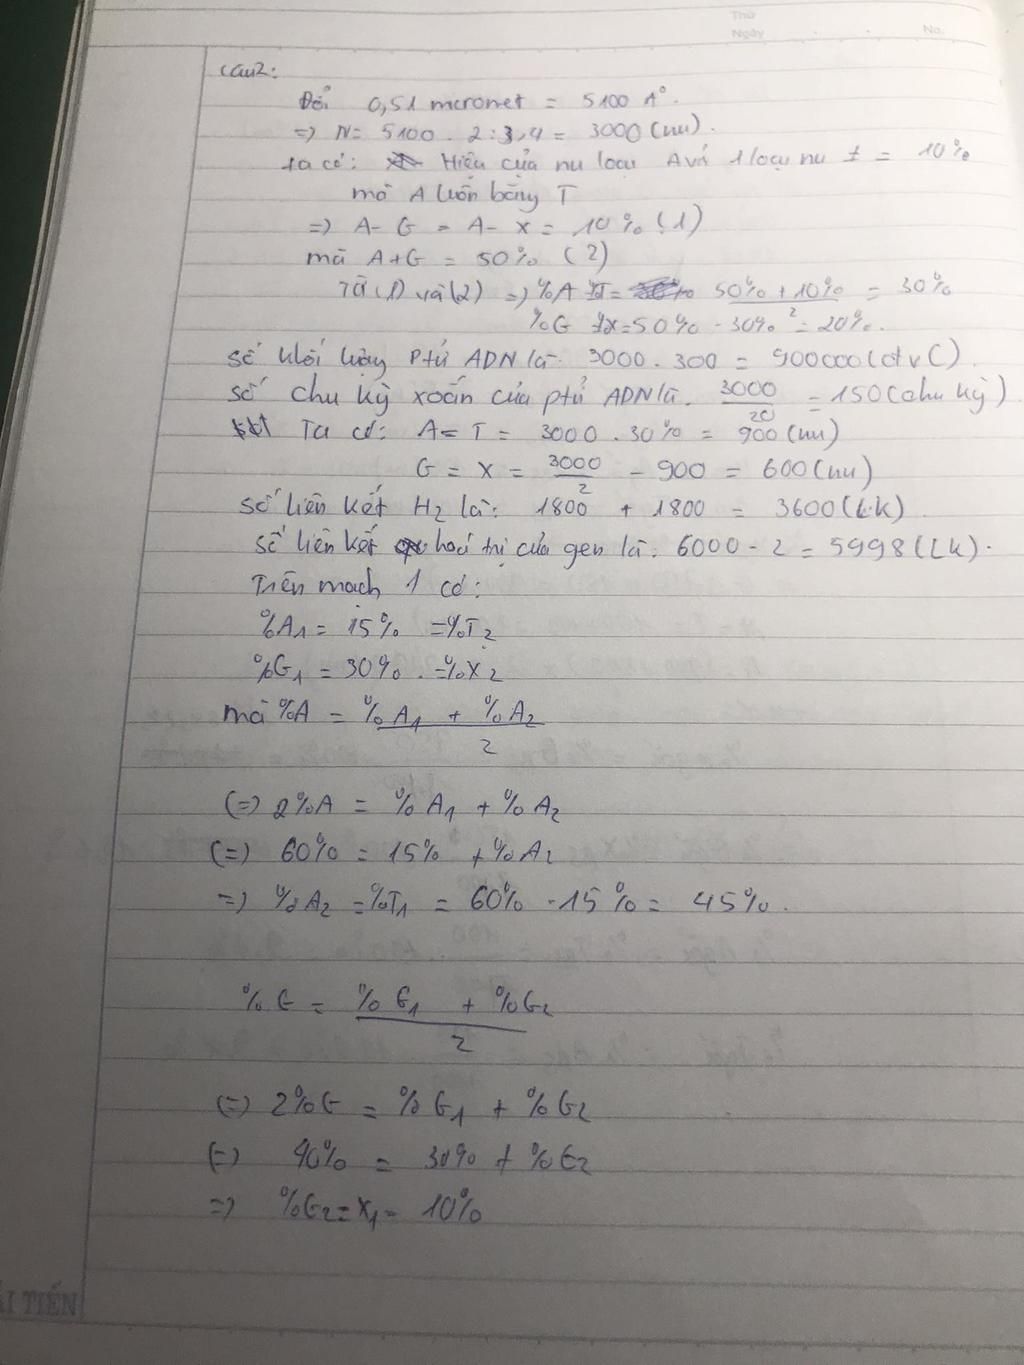 Thứ
Ngày No.
Câu2:
Đổi 0,51 mcromet = 5100 A°.
=> N= 5100 . 2:3,4 = 3000 (nu).
ta có: Hiệu của nu loại A với 1 loại nu ≠ = 10%
mà A luôn bằng T
=> A- G = A- X = 10% (1)
mà A+G = 50% (2)
Từ (1) và (2) => %A =T= 50% + 10% / 2 = 30%
%G =X=50% - 30% = 20%.
số khối lượng Ptử ADN là 3000 . 300 = 900000(đvC).
số chu kỳ xoắn của ptử ADN là. 3000/20 = 150 (chu kỳ)
Ta có: A= T = 3000 . 30% = 900 (nu)
G = X = 3000/2 - 900 = 600 (nu)
số liên kết H2 là: 1800 + 1800 = 3600 (L.k).
số liên kết hoá trị của gen là. 6000 - 2 = 5998 (Lk).
Trên mạch 1 có:
%A1 = 15% =%T2
%G1 = 30% . =%X2
mà %A = %A1 + %A2 / 2
(=) 2%A = %A1 + %A2
(=) 60% = 15% + %A2
=> %A2 =%T1 = 60% - 15% = 45%.
%G = %G1 + %G2 / 2
(=) 2%G = %G1 + %G2
(=) 40% = 30% + %G2
=> %G2 = X1 = 10%
ẢI TIẾN